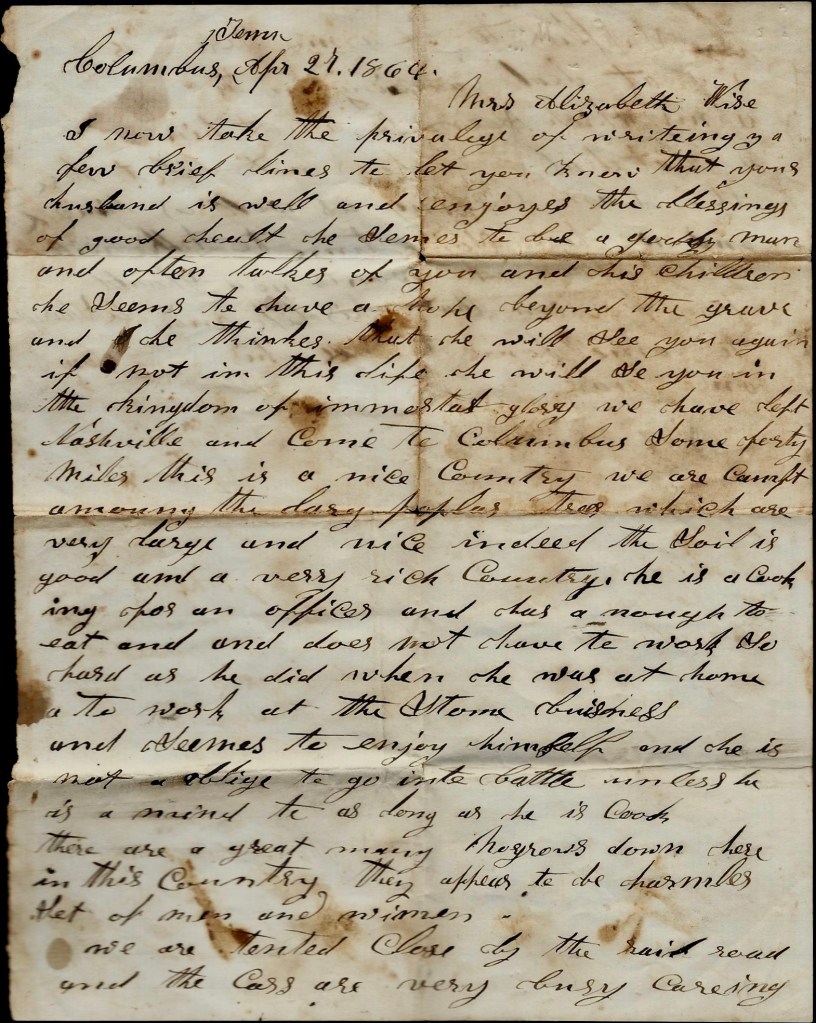 Tenn
Columbus, Apr 27. 1864.
Mrs Alizabeth Wise
I now take the privalege of writeing y a
few brief lines to let you know that your
husband is well and enjoyes the blessings
of good healt he Semes to be a godly man
and often talkes of you and his children
he Seems to have a hope beyond the grave
and he thinkes that he will See you again
if not im this life he will Se you in
the kingdom of immortal glory we have left
Nashville and Come to Columbus Some forty
Miles this is a nice Country we are Campt
amoung the larg poplar trees which are
very large and nice indeed the Soil is
good and a verry rich Country, he is a Cook
ing for an officer and has a nough to
eat and and does not have to work So
hard as he did when he was at home
a to work at the Stone buisness
and Seemes to enjoy himself and he is
not a oblige to go into battle unless he
is a mind to as long as he is Cook
there are a great many Negrows down here
in this Country they appear to be harmles
Set of men and wimen .
we are tented Close by the rail road
and the Cars are very busy Careing